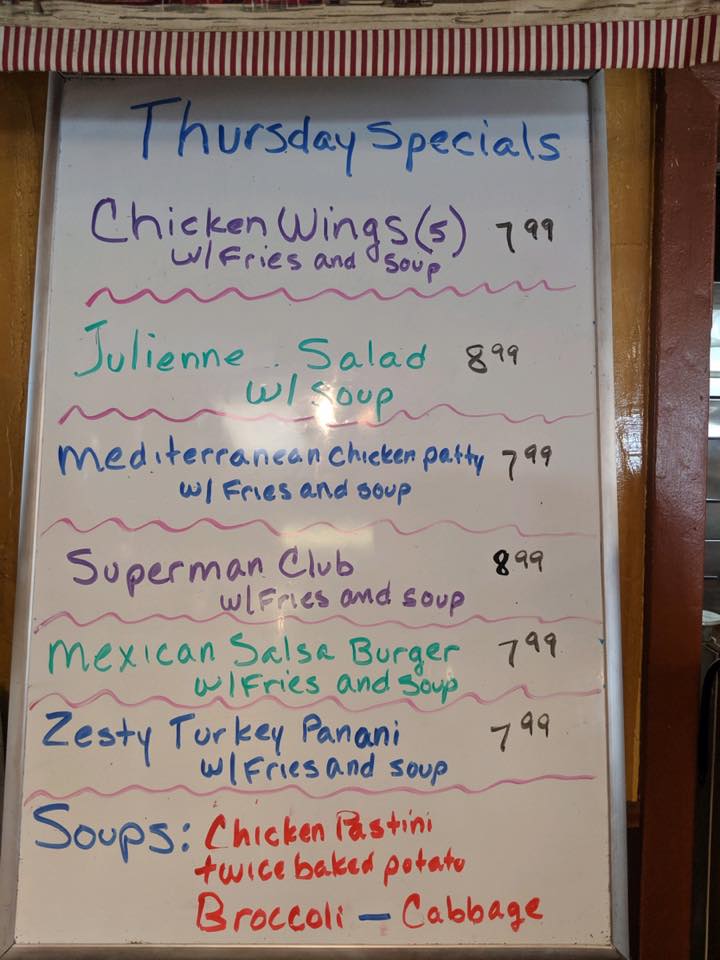 Thursday Specials
Chicken Wings (5) 7.99
w/ Fries and soup
Julienne Salad 8.99
w/ soup
Mediterranean chicken patty 7.99
w/ Fries and soup
Superman Club 8.99
w/ Fries and soup
Mexican Salsa Burger 7.99
w/ Fries and soup
Zesty Turkey Panani 7.99
w/ Fries and soup
Soups: Chicken Pastini
twice baked potato
Broccoli – Cabbage